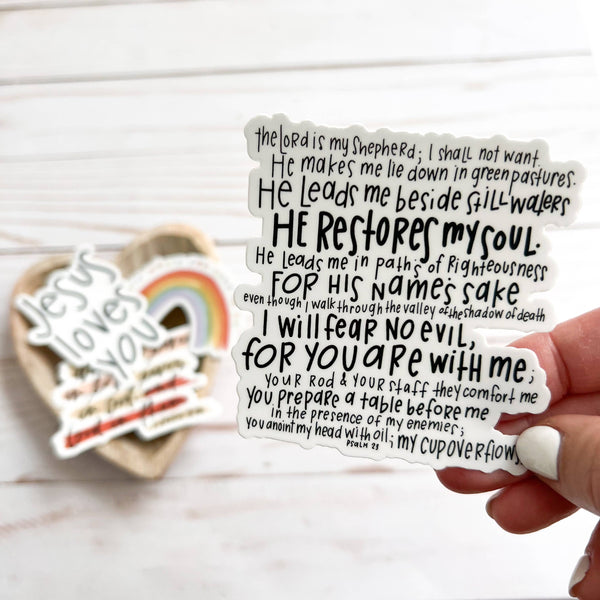 the Lord is my Shepherd; I shall not want.
He makes me lie down in green pastures.
He Leads me beside still waters
HE RESTORES MY SOUL.
He Leads me in paths of Righteousness
FOR HIS NAMES SAKE
even though I walk through the valley of the shadow of death
I will fear NO EVIL,
for you are with me;
your Rod & your staff they comfort me
You prepare a table before me
in the presence of my enemies;
you anoint my head with oil; my cup overflows
PSALM 23
Jesus
loves
you